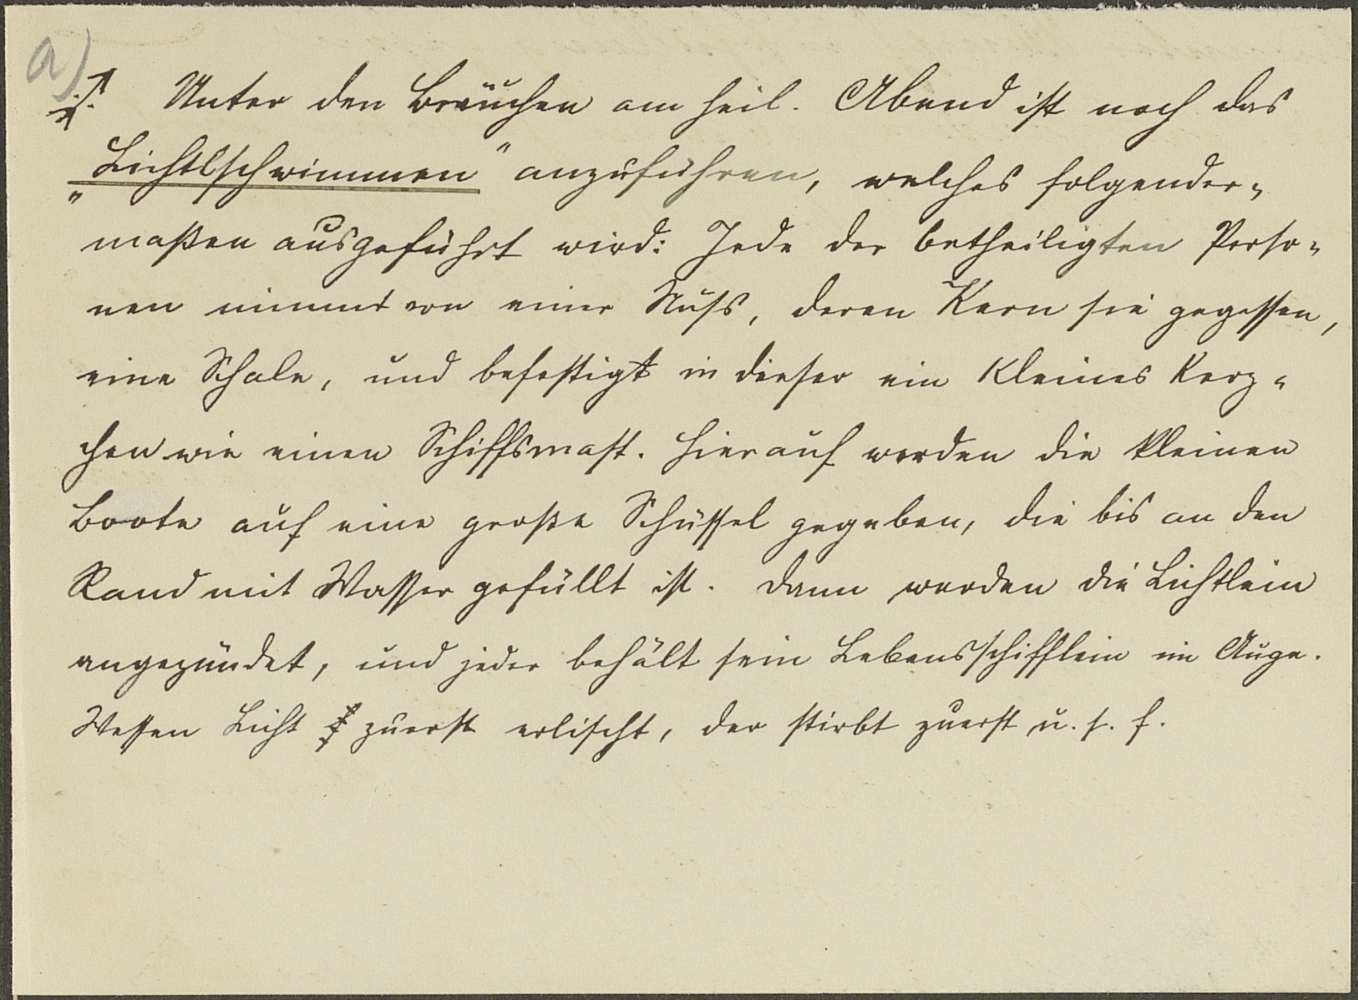 a)
Unter den Bräuchen am heil. Abend ist noch das
„Lichtlschwimmen" anzuführen, welches folgender-
maßen ausgeführt wird: Jede der betheiligten Perso-
nen nimmt von einer Nuß, deren Kern sie gegessen,
eine Schale, und befestigt in dieser ein kleines Kerz-
chen wie einen Schiffsmast. Hierauf werden die kleinen
Boote auf eine große Schüssel gegeben, die bis an den
Rand mit Wasser gefüllt ist. Dann werden die Lichtlein
angezündet, und jeder behält sein Lebensschifflein im Auge.
Wessen Licht zuerst erlischt, der stirbt zuerst u. s. f.